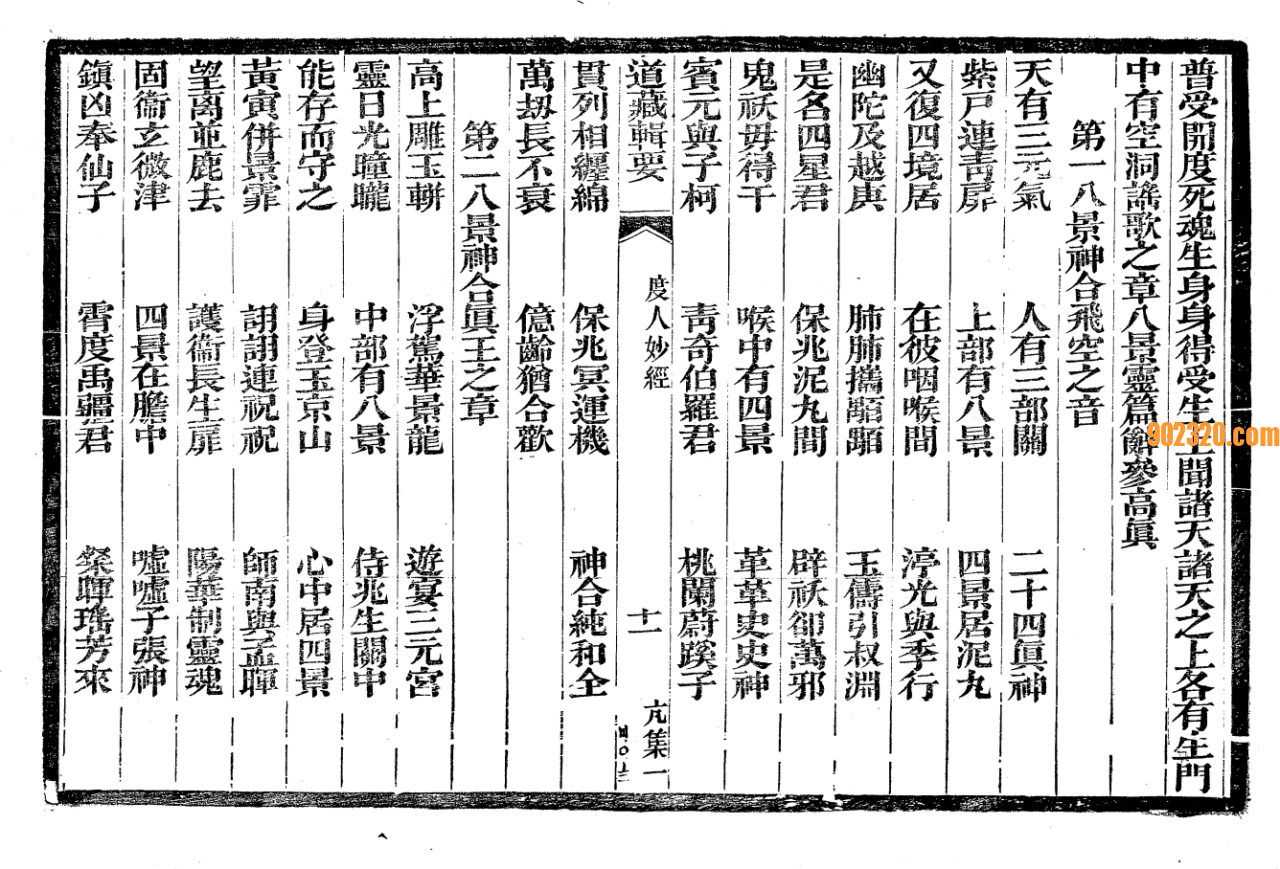 普受開度死魂生身身得受生上聞諸天諸天之上各有生門
中有空洞謠歌之章八景靈篇辭參高眞
第一八景神合飛空之音
天有三元氣　人有三部關　二十四眞神
紫戸連靑扉　上部有八景　四景居泥丸
又復四境居　在彼咽喉間　渟光與季行
幽陀及越庚　肺肺攜䮑䮑　玉儔引叔淵
是名四星君　保兆泥丸間　辟祅卻萬邪
鬼祅毋得干　喉中有四景　革革史史神
賓元與子柯　靑奇伯羅君　桃闌蔚蹊子
道藏輯要　度人妙經　十一　亢集一
貫列相纒綿　保兆冥運機　神合純和全
萬劫長不衰　億齡猶合歡
第二八景神合眞王之章
高上雕玉輧　浮駕華景龍　遊宴三元宮
靈日光曈曨　中部有八景　侍兆生關中
能存而守之　身登玉京山　心中居四景
黃寅併景霏　翃翃連祝祝　師南與孟暉
望离並鹿去　護衞長生扉　陽華制靈魂
固衞玄微津　四景在膽中　噓噓子張神
鎭凶奉仙子　霄度禹疆君　粲暉瑎芳來
902320.com